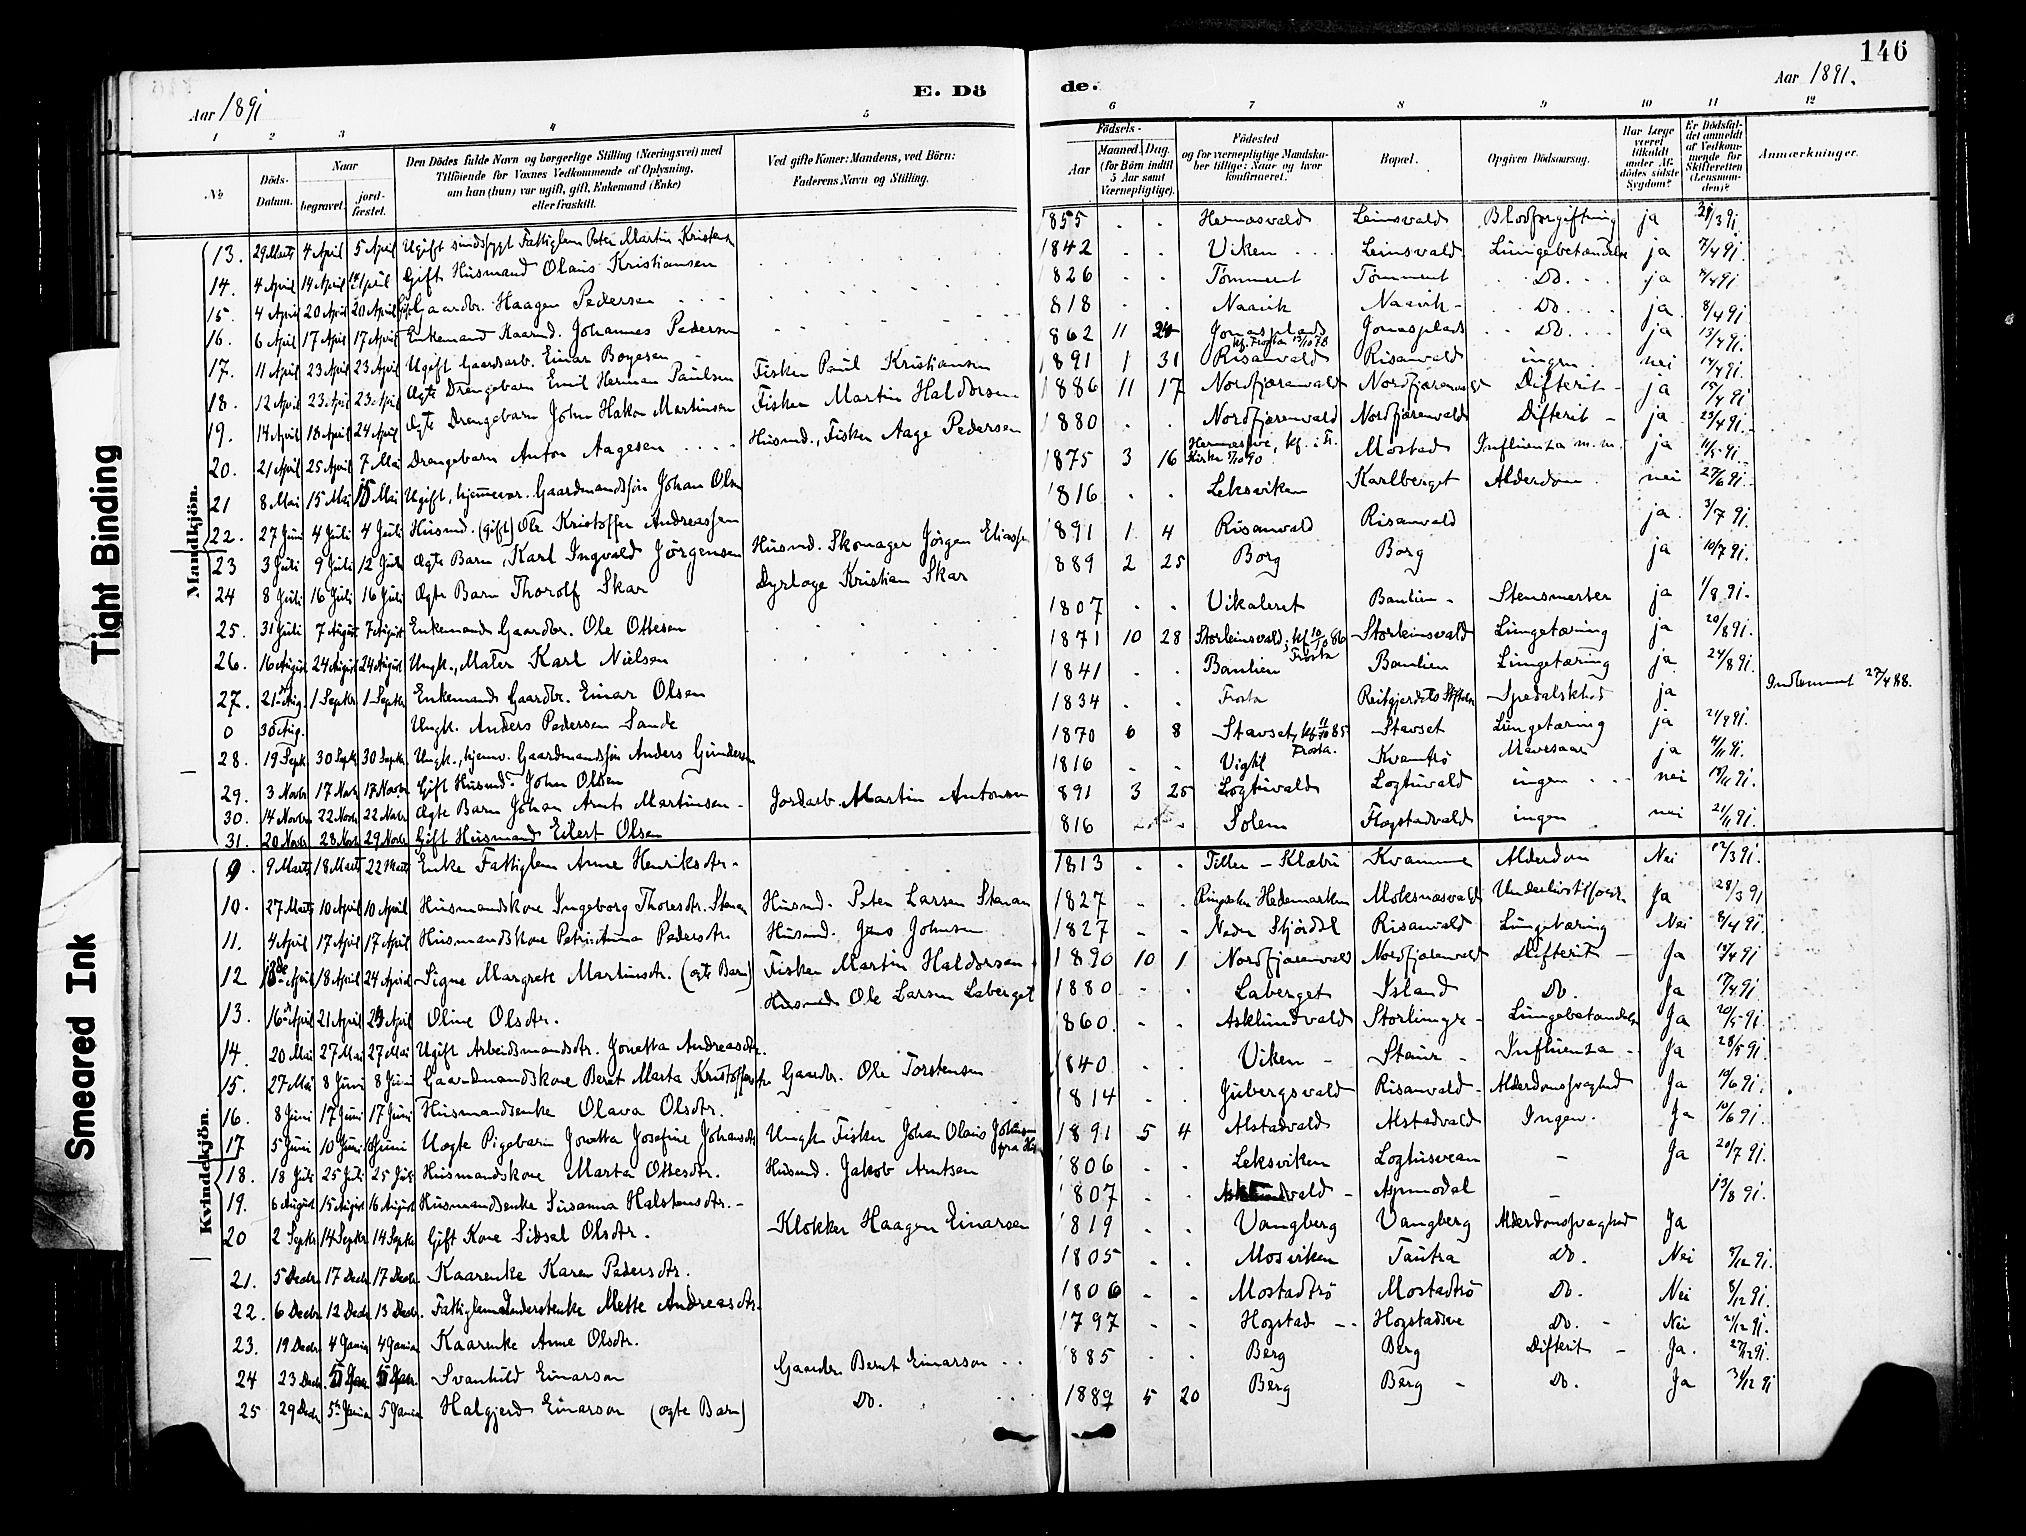 146
Aar 1891
E. Dö
de.
Aar 1891.
1 2 3 4 5 6 7 8 9 10 11 12
№
Döds-Datum.
Naar
begravet.
jord-fæstet.
Den Dödes fulde Navn og borgerlige Stilling (Næringsvei) med
Tilföiende for Voxnes Vedkommende af Oplysning,
om han (hun) var ugift, gift, Enkemand (Enke)
eller fraskilt.
Ved gifte Koner: Mandens, ved Börn:
Faderens Navn og Stilling.
Födsels-
Aar
Maaned. Dag.
(for Börn indtil
5 Aar samt
Værnepligtige).
Födested
og for værnepligtige Mandskaber tillige: Naar og hvor
konfirmeret.
Bopæl.
Opgiven Dödsaarsag.
Har Læge været tilkaldt under Afdödes sidste Sygdom?
Er Dödsfaldet anmeldt af Vedkommende for Skifteretten (Lensmanden)?
Anmærkninger.
Mandkjön.
13. 29 Marts 4 April 5 April Ugift sindssygt Fattiglem Peter Martin Kristens 1855 Hernæsvald Leinsvald Blodforgiftning ja
14. 4 April 14 April April Gift Husmand Olaus Kristiansen 1842 Viken Leinsvald Lungebetændelse ja 7/4 91
15. 4 April 20 April 20 April Gaardbr. Haagen Pedersen 1826 Tömmeret Tömmeret Do. ja 7/4 91
16. 6 April 17 April 17 April Enkemand Kaarmd. Johannes Pedersen 818 Naavik Naavik Do. ja 8/4 91
17. 11 April 23 April 23 April Ugift Gaardarb. Einar Boyesen 862 11 Jonasplads Jonasplads Do. ja 13/4 91.
18. 12 April 23 April 23 April Ægte Drengebarn Emil Herman Paulsen Fisker Paul Kristiansen 1891 1 31 Risanvald Risanvald ingen nei 14/4 91.
19. 14 April 18 April 24 April Ægte Drengebarn John Hakon Martinsen Fisker Martin Haldorsen 1886 11 17 Nordfjærenvald Nordfjærenvald Difterit ja 15/4 91
20. 21 April 25 April 7 Mai Drengebarn Anton Aagesen Husmd., Fisker Aage Pedersen 1880 Nordfjærenvald Nordfjærenvald Difterit ja 23/4 91.
21 8 Mai 15 Mai 15 Mai Ugift, hjemmevær. Gaardmandssön Johan Olsen 1875 3 16 Mostad Influenza m.m. ja 11/5 91.
22. 27 Juni 4 Juli 4 Juli Husmd. (gift) Ole Kristoffer Andreassen 1816 Leksviken Karlberget Alderdom nei 27/6 91.
23 3 Juli 9 Juli 12 Juli Ægte Barn, Karl Ingvald Jörgensen Husmd. Skomager Jörgen Eliass. 1891 1 4 Risanvald Risanvald ja 3/7 91.
24 8 Juli 16 Juli 16 Juli Ægte Barn Thorolf Skar Dyrlæge Kristian Skar 889 2 25 Borg Borg ja 10/7 91.
25. 31 Juli 7 August 7 August Enkemand Gaardbr. Ole Ottesen 1807 Vikaleret Banlien Stensmerter ja 1/8 91.
26. 16 August 24 August 24 August Ungk., Maler Karl Nielsen 1871 10 28 Storleinsvald; kf. 10/10 86 Frosta Storleinsvald Lungetæring ja 20/8 91.
27. 21 Aug. 1 Septbr 1 Septbr Enkemand Gaardbr. Einar Olsen 1841 Banlien Banlien Lungetæring ja 24/8 91.
0 30 Aug. Ungk. Anders Pedersen Sande 1834 Frosta Reitgjerdets Stiftelse Spedalskhed ja Indkommet 27/4 88.
28. 19 Septb 30 Septb 30 Septbr Ungk., hjemv. Gaardmandssön Anders Gundersen 1870 6 8 Stavset, kf. 85 Frosta. Stavset Lungetæring ja 21/9 91.
29. 3 Novbr 17 Novbr 17 Novbr Gift Husmd. John Olsen 1816 Vigtil Kvamtrö Mavesaar ja 4/11 91.
30. 14 Novbr 22 Novbr 22 Novbr Ægte Barn Johan Arnt Martinsen Jordarb. Martin Antonsen 891 3 25 Logtuvald Logtuvald ingen nei
31. 20 Novbr 28 Novbr 29 Novbr Gift Husmand Eilert Olsen 816 Solem Flogstadvald ingen nei 21/11 91.
Kvindekjön.
9. 9 Marts 18 Marts 22 Marts Enke Fattiglem Anne Henriksdtr. 1813 Tiller - Klæbu Kvamme Alderdom Nei 12/3 91.
10. 27 Marts 10 April 10 April Husmandskone Ingeborg Thoresdtr. Stavan Husmd. Peter Larsen Stavan 1827 Ringsaker Hedemarken Moksnæsvald Ja 28/3 91
11. 4 April 17 April 17 April Husmandskone Petrianna Pedersdtr. Husmd. Jens Johnsen 1827 Nedre Stjördal Risanvald Lungetæring Nei 8/4 91.
12 13de April 18 April 24 April Signe Margrete Martinsdtr. (ægte Barn) Fisker Martin Haldorsen 1890 10 1 Nordfjærenvald Nordfjærenvald Difterit Ja 15/4 91
13. 16 April 21 April 24 April Oline Olsdtr. Husmd. Ole Larsen Laberget 1880 Laberget Island Do. Ja 17/4 91.
14. 20 Mai 27 Mai 27 Mai Ugift Arbeidsmandsdtr. Jonetta Andreasdtr. 860. Asklundvald Storlunge Lungebetændelse Ja 20/5 91.
15. 27 Mai 8 Juni 8 Juni Gaardmandskone Beret Marta Kristoffersdtr. Gaardbr. Ole Torstensen 1840 Viken Staur Influenza Ja 28/5 91.
16. 8 Juni 17 Juni 17 Juni Husmandsenke Olava Olsdtr. 1814 Jubergsvald Risanvald Alderdomssvaghed Ja 10/6 91.
17 5 Juni 10 Juni Juni Uægte Pigebarn Jonetta Josefine Johansdtr Ungk. Fisker Johan Olaus Johansen fra 1891 5 4 Alstadvald Alstadvald Ingen. Ja 10/6 91.
18. 18 Juli 25 Juli 25 Juli Husmandskone Marta Ottesdtr. Husmd. Jakob Arntsen 1806 Leksviken Logtusvean - Ja 20/7 91.
19. 6 August 15 August 16 August Husmandsenke Susanna Halstensdtr. 1807 Asklundvald Aspmodal - 13/8 91.
20 2 Septbr 14 Septbr 14 Septbr Gift Kone Sidsel Olsdtr. Klokker Haagen Einarsen 1819 Vangberg Vangberg Alderdomssvaghed Ja
21. 5 Decbr. 17 Decbr. 17 Decbr. Kaarenke Karen Pedersdtr. 1805 Mosviken Tautra Do. Nei 7/12 91.
22. 6 Decbr 12 Decbr 13 Decbr. Fattiglem Inderstenke Mette Andreasdtr. 1806 Mostadtrö Mostadtrö Do. Nei 8/12 91.
23. 19 Decbr 4 Januar 4 Januar Kaarenke Anne Olsdtr. 1797 Hogstad Hogstadsve Do. Nei 21/12 91.
24 23 Decbr. 5 Janr. 5 Janr. Svanhild Einarson Gaardbr. Bernt Einarson 885 Berg Berg Difterit Ja. 27/12 91.
25 29 Decbr 5 Januar 5 Januar Halgjerd Einarson (ægte Barn) Do. 1889 5 20 Berg Berg Do. Ja 31/12 91
Tight Binding
Smeared Ink